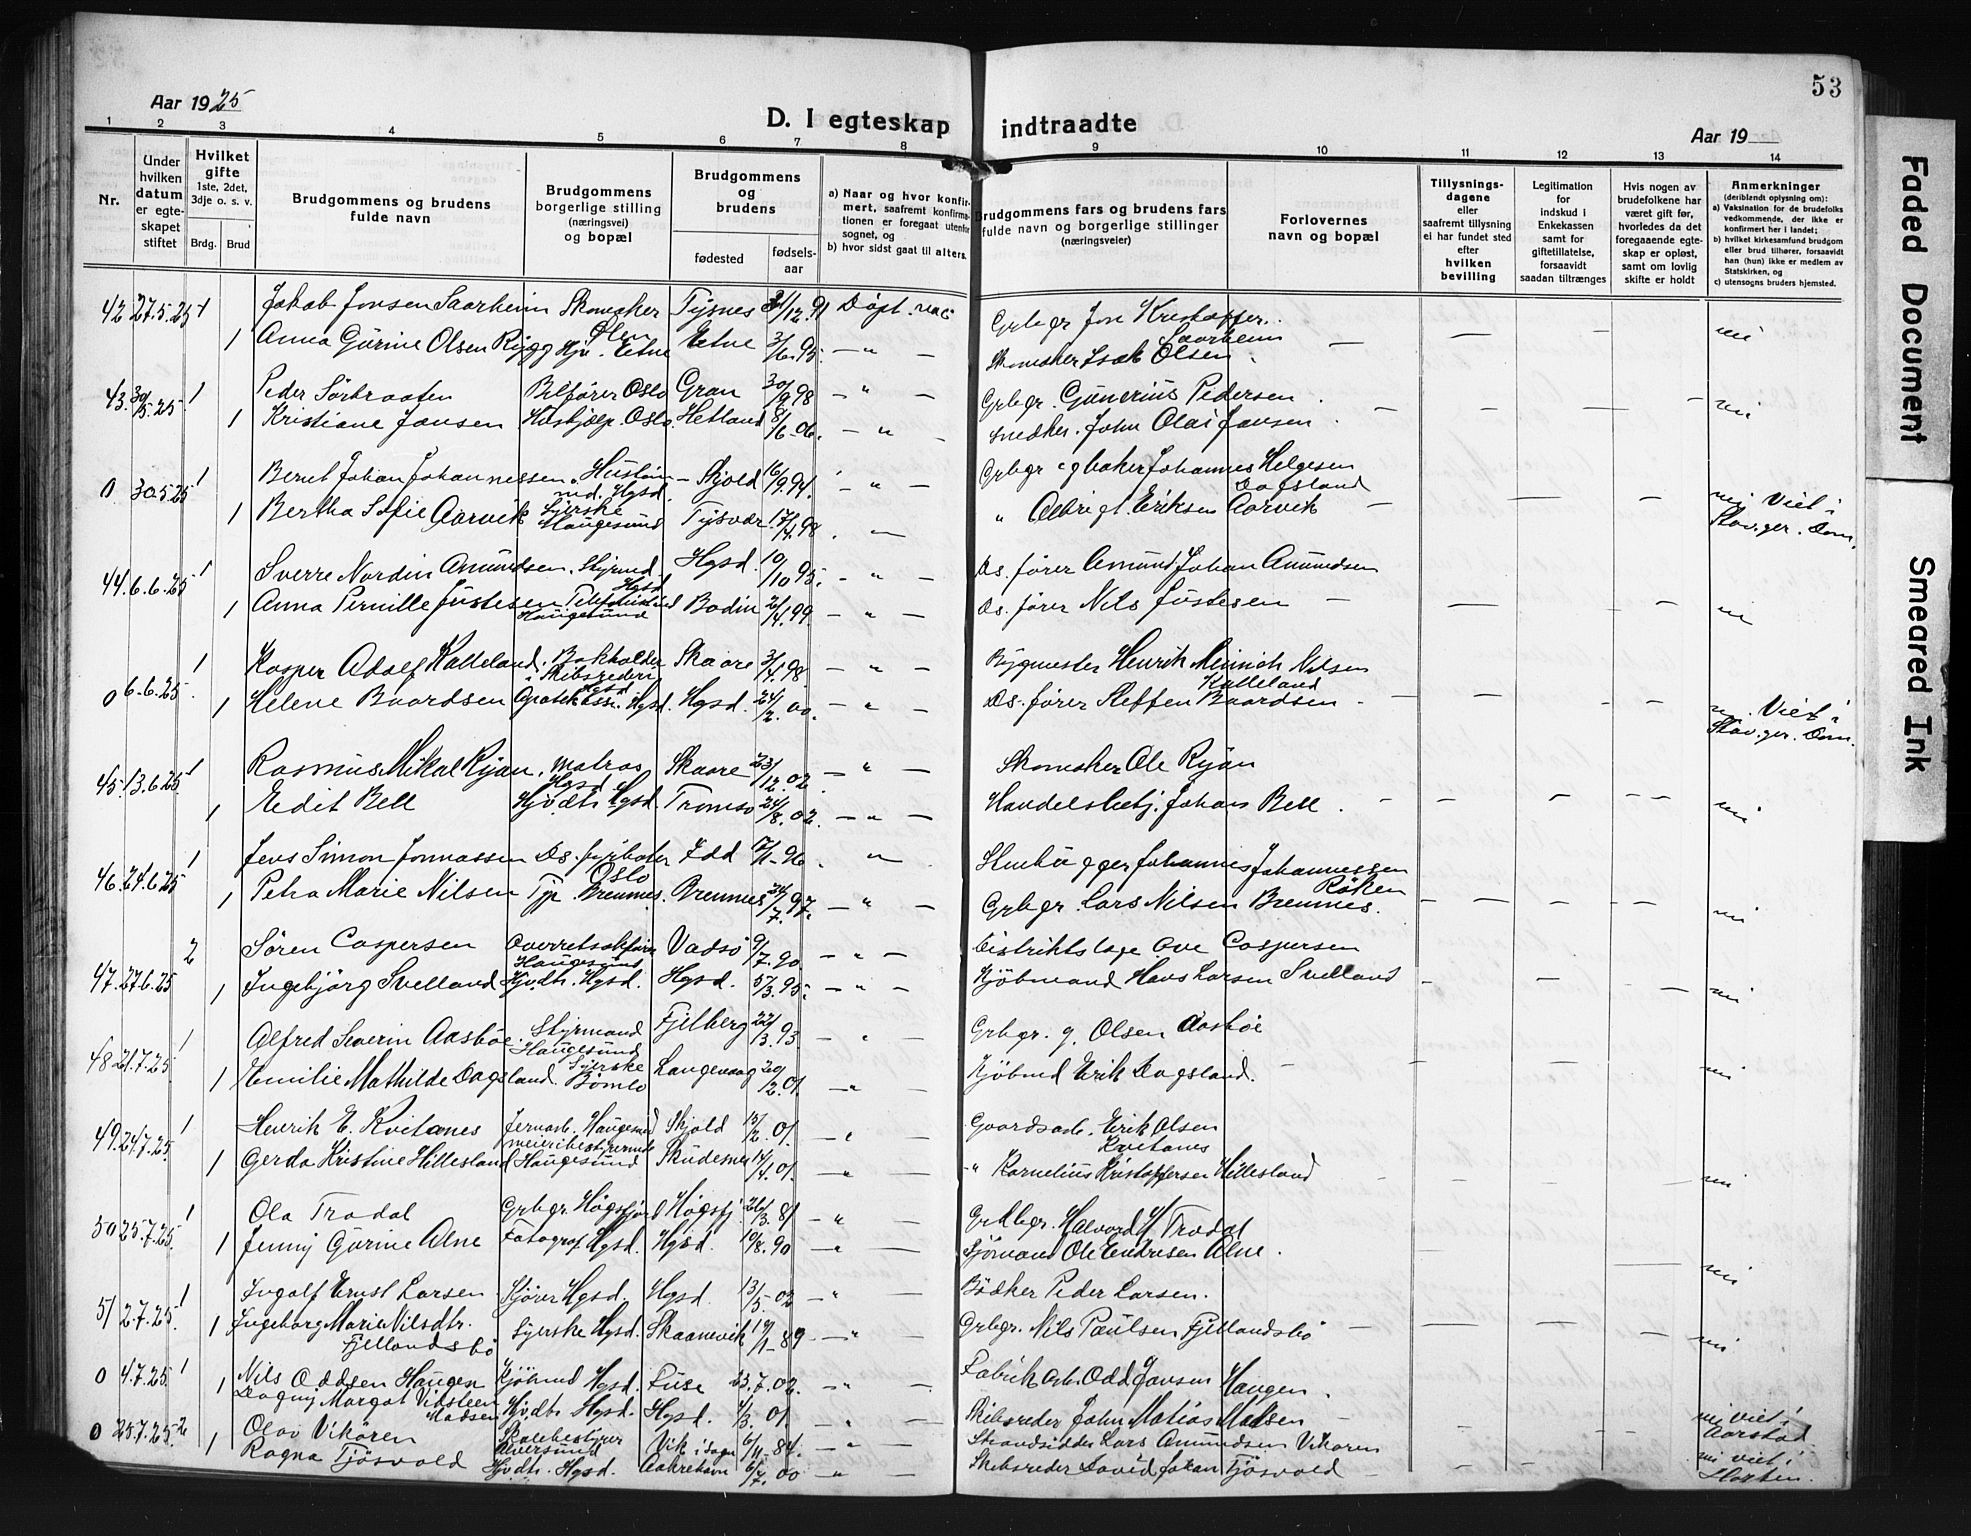 53
Aar 1925
D. I egteskap indtraadte
Aar 19
1 2 3 4 5 6 7 8 9 10 11 12 13 14
Nr.
Under hvilken datum er egteskapet stiftet
Hvilket gifte
1ste, 2det, 3dje o. s. v.
Brdg. Brud
Brudgommens og brudens fulde navn
Brudgommens borgerlige stilling (næringsvei) og bopæl
Brudgommens og brudens
fødested
fødselsaar
a) Naar og hvor konfirmert, saafremt konfirmationen er foregaat utenfor sognet, og
b) hvor sidst gaat til alters.
Brudgommens fars og brudens fars fulde navn og borgerlige stillinger (næringsveier)
Forlovernes navn og bopæl
Tillysningsdagene eller saafremt tillysning ei har fundet sted efter hvilken bevilling
Legitimation for indskud i Enkekassen samt for giftetillatelse, forsaavidt saadan trænges
Hvis nogen av brudefolkene har været gift før, hvorledes da det foregaaende egteskap er opløst, samt om lovlig skifte er holdt
Anmerkninger
(deriblandt oplysning om):
a) Vaksination for de brudefolks vedkommende, der ikke er konfirmert her i landet;
b) hvilket kirkesamfund brudgom eller brud tilhører, forsaavidt han (hun) ikke er medlem av Statskirken, og
c) utensogns bruders hjemsted.
42 27.5.25 1 Jakob Jonsen Saarheim Skomaker Ølen Tysnes /12.91 Døpt Grbgr Jon Kristoffer. Saarheim
1 Anna Gurine Olsen Rygg Hjv. Etne Etne 3/6.95. — " — Skomaker Isak Olsen
43. 30/5.25. 1 Peder Sørbraaten Bilfører Oslo Gran 30/9 98 — " — Grbgr. Gunerius Pedersen
1 Kristiane Jansen Hushjelp Oslo. Hetland 8/6-06. — " — Snedker. John Olai Jansen
0 30.5.25 1 Bernt Johan Johannessen. Hustømmd. Hgsd. Skjold 16/9.94. — " — Grbgr og baker Johannes Helgesen Dafsland
1 Bertha Sofie Aarvik Syerske Haugesund Tysvær 17/4.98. — " Albrigt. Eriksen Aarvik — nei Viet i Stav.ger. Dom.
44. 6.6.25 1 Sverre Nordin Amundsen. Styrmd. Hgsd Hgsd. 10/10 95. — " — Ds. fører Amund Johan Amundsen
1 Anna Pernille Justesen Haugesund Bodin 2/4.99. — " — Ds. fører Nils Justesen — nei
0 6.6.25. 1 Kasper Adolf Kalleland. Bokholder i Skibsrederi Hgsd Skaare 3/4.98 — " — Bygmester Henrik Meinich Nilsen Kalleland
1 Helene Baardsen Apotekass. Hgsd. Hgsd. 24/2.00. — " — Ds. fører Steffen Baardsen — Viet i Stav.ger. Dom.
45. 13.6.25. 1 Rasmus Mikal Ryan. Matros Hgsd Skaare 23/12.02. — " — Skomaker Ole Ryan
1 Edit Bell Hjv.dtr. Hgsd. Tromsø 24/8.02. — " — Handelsbetj. Johan Bell. nei
46. 24.6.25 1 Jens Simon Jonnassen Ds. fyrbøter Oslo Idd 17/1-96. " Stuebygger Johannes Johannessen Røken
1 Petra Marie Nilsen Tjp. Bremnes. Bremnes 24/7.97. — " — Grbgr. Lars Nilsen Bremnes. nei
47. 27.6.25 2 Søren Caspersen Overretssakfører Haugesund Vadsø 9/7.90. — " — Distriktslæge Ove Caspersen
1 Ingebjørg Svelland Hjv.dtr. Hgsd. Hgsd. 5/3.95. — " — Kjøbmand Hans Larsen Svelland nei
48 21.7.25. 1 Alfred Severin Aasbøe. Styrmand Haugesund Fjelberg 22/3.93. — " Grbgr. G. Olsen Aasbøe
1 Emilie Mathilde Dagsland. Syerske Bømlo Langevaag 20/2.01. — " — Kjøbmd Erik Dagsland. nei
49. 24.7.25. 1 Henrik E. Kvitanes Jernarb. Haugesund Skjold 15/2.01. — " Gaardsarb. Erik Olsen Kvitanes
1 Gerda Kristine Hillesland Meieribestyrerinde Haugesund Skudesnes 14/4.01. — " — " Kornelius Kristoffersen Hillesland nei
50 25.7.25. 1 Ola Trodal Grbgr. Høgsfjord Høgsfj. 26/3.81 — " — Grbgr. Halvord H Trodal
1 Jenny Gurine Alne Fotograf Hgsd. Hgsd. 10/8.90 — " — Sjømand Ole Endresen Alne. nei
51 2.7.25. 1 Ingolf Ernst Larsen Kjører Hgsd. Hgsd. 13/5-02 — " Bødker Peder Larsen.
1 Ingeborg Marie Nilsdtr. Fjellandsbø Syerske Hgsd. Skaanevik 19/1-89 — " — Grbgr. Nils Paulsen Fjellandsbø nei
0 4.7.25. 1 Nils Oddsen Haugen Kjøbmd Hgsd. Fuse 23.7.02. — " — Fabrikarb. Odd Jansen Haugen.
1 Dagny Margot Vidsteen Madsen Hjv.dtr. Hgsd. Hgsd. /3.01. — " — Skibsreder John Matias Madsen — nei viet i Aarstad
0 25.7.25. 2 Olav Vikøren Skolebestyrer Alversund Vik i Sogn 6/11.84. — " — Strandsidder Lars Amundsen Vikøren
1 Ragna Tjøsvold Hjv.dtr. Hgsd. Aakrehavn 6/7.00 — " — Skibsreder David Johan Tjøsvold — nei viet i Horten.
Faded Document
Smeared Ink